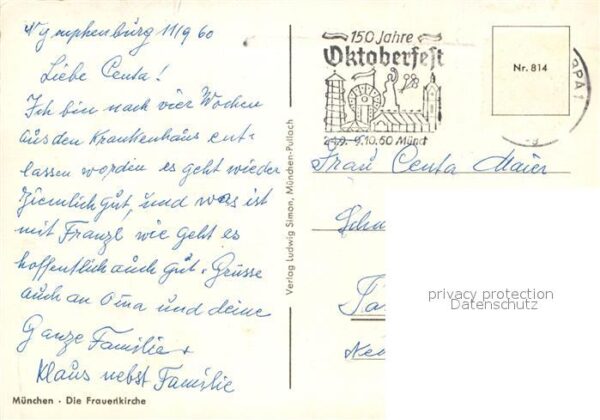 Nymphenburg 11/9 60
Liebe Centa!
Ich bin nach vier Wochen
aus den Krankenhaus ent-
lassen worden es geht wieder
Ziemlich gut, und was ist
mit Franzl wie geht es
hoffentlich auch gut. Grüsse
auch an Oma und deine
Ganze Familie +
Klaus nebst Familie
München · Die Frauenkirche
Verlag Ludwig Simon, München-Pullach
150 Jahre
Oktoberfest
9.10.60 Münch
Nr. 814
Frau Centa Maier
privacy protection
Datenschutz